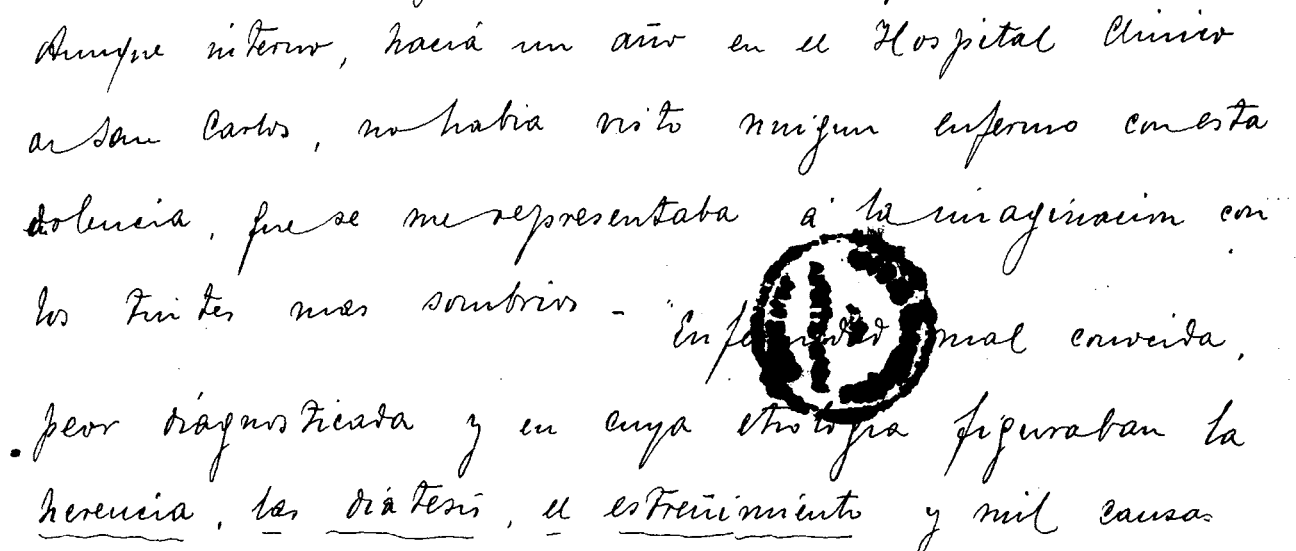 Aunque interno, hacía un año en el Hospital Clinico
de San Carlos, no habia visto ningun enfermo con esta
dolencia, que se me representaba á la imaginacion con
los tintes mas sombrios - Enfermedad mal conocida,
peor diagnosticada y en cuya etiologia figuraban la
herencia, las diátesis, el estreñimiento y mil causas